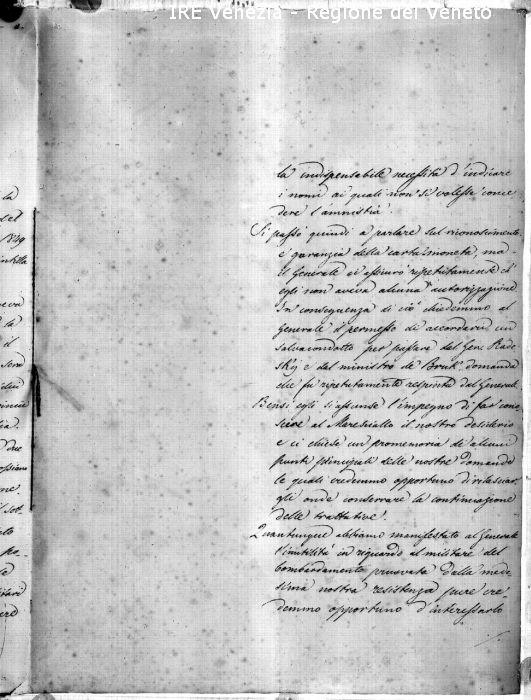 IRE Venezia - Regione del Veneto
la indispensabile necessità d'indicare
i nomi ai quali non si volesse conce
dere l'amnistia.
Si passò quindi a parlare sul riconoscimento
e garanzia della carta monetata, ma
il Generale ci assicurò ripetutamente ch'
egli non aveva alcuna autorizzazione
In conseguenza di ciò chiedemmo al
Generale il permesso di accordarci un
salvacondotto per passare dal Gen. Rade
sky e dal ministro de Bruk, domanda
che fu ripetutamente respinta dal Generale
Bensì egli si assunse l'impegno di far cono
scere al Maresciallo il nostro desiderio
e ci chiese un promemoria di alcuni
punti principali delle nostre domande
le quali credemmo opportuno di rilasciar
gli onde conservare la continuazione
delle trattative.
Quantunque abbiamo manifestato al Generale
l'inutilità in riguardo al militare del
bombardamento provata dalla mede
sima nostra resistenza pure cre
demmo opportuno d'interessarlo
la
del
1849
la
il
due